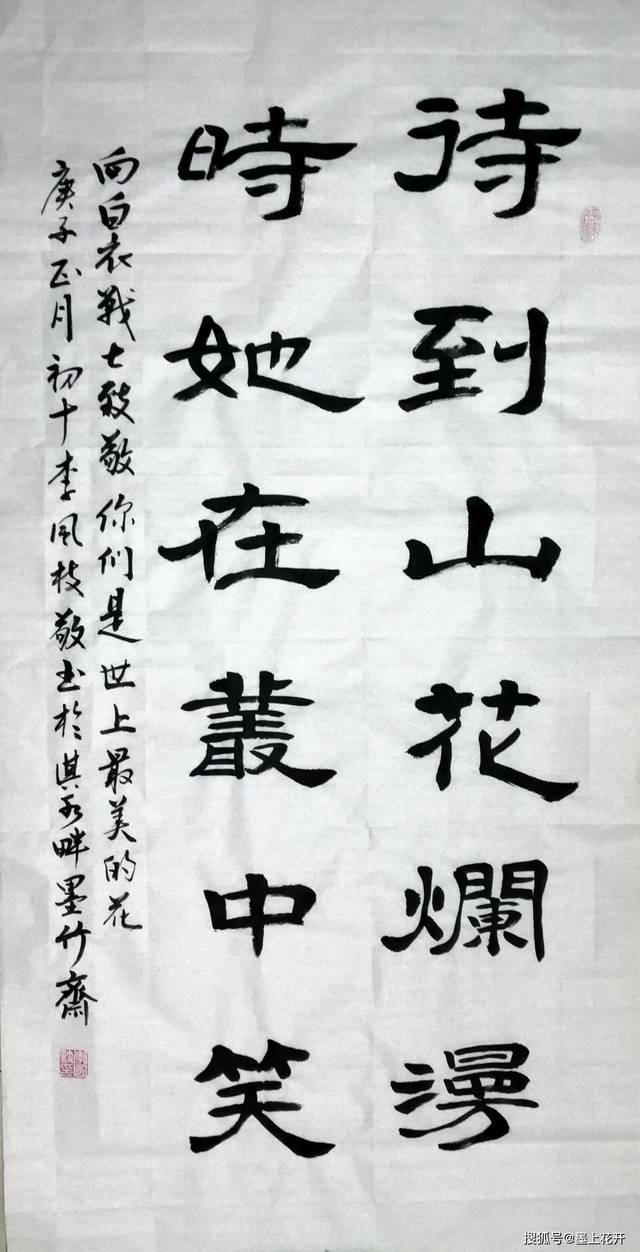 待到山花爛漫
時她在叢中笑
向白衣戰士致敬你们是世上最美的花
庚子正月初十李风枝敬书於淇水畔墨竹齋
搜狐号@墨上花开